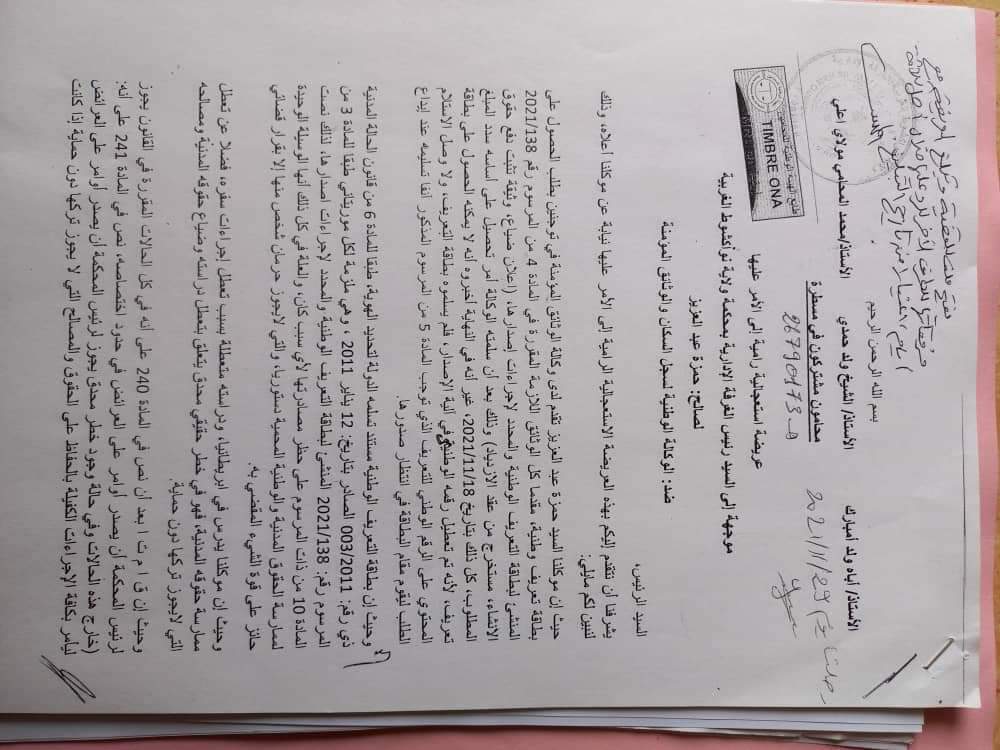 بسم الله الرحمن الرحيم
الأستاذ/ أباه ولد أمبارك الأستاذ/ الشيخ ولد حمدي الأستاذ/محمد المحامي مولاي اعلي
محامون مشتركون في مسطرة
طابع الهيئة الوطنية للمحامين
TIMBRE ONA
26790173
2021/11/29
عريضة استعجالية رامية إلى الأمر عليها
موجهة إلى السيد رئيس الغرفة الإدارية بمحكمة ولاية نواكشوط الغربية
لصالح: حمزة عبد العزيز
ضد: الوكالة الوطنية لسجل السكان والوثائق المؤمنة
السيد الرئيس،
يشرفنا أن نتقدم إليكم بهذه العريضة الاستعجالية الرامية إلى الأمر عليها نيابة عن موكلنا أعلاه، وذلك
لنبين لكم مايلي:
حيث إن موكلنا السيد حمزة عبد العزيز تقدم لدى وكالة الوثائق المؤمنة في توجنين بطلب الحصول على
بطاقة تعريف وطنية، مقدما كل الوثائق اللازمة المقررة في المادة 4 من المرسوم رقم 2021/138
المنشئ لبطاقة التعريف الوطنية والمحدد لإجراءات إصدارها، (اعلان ضياع، وثيقة تثبت دفع حقوق
الانشاء، مستخرج من عقد الازدياد) وذلك بعد أن سلمته الوكالة أمر تحصيل على أساسه سدد المبلغ
المطلوب، كل ذلك بتاريخ 2021/11/18، غير أنه في النهاية أخبروه أنه لا يمكنه الحصول على بطاقة
تعريف، لأنه تم تعطيل رقمه الوطني في آلية الإصدار، فلم يسلموه بطاقة التعريف، ولا وصل الاستلام
المحتوي على الرقم الوطني للتعريف الذي توجب المادة 5 من المرسوم المذكور آنفا تسليمه عند إيداع
الطلب ليقوم مقام البطاقة في انتظار صدورها.
وحيث إن بطاقة التعريف الوطنية مستند تسلمه الدولة لتحديد الهوية، طبقا للمادة 6 من قانون الحالة المدنية
ذي رقم: 003/2011 الصادر بتاريخ: 12 يناير 2011 ، وهي ملزمة لكل موريتاني طبقا للمادة 3 من
المرسوم رقم: 2021/138 المنشئ لبطاقة التعريف الوطنية والمحدد لإجراءات اصدارها، لذلك نصت
المادة 10 من ذات المرسوم على حظر مصادرتها لأي سبب كان، والعلة في كل ذلك أنها الوسيلة الوحيدة
لممارسة الحقوق المدنية والوطنية المحمية دستوريا، والتي لايجوز حرمان شخص منها إلا بقرار قضائي
حائز على قوة الشيء المقضي به.
وحيث إن موكلنا يدرس في ابريطانيا، ودراسته متعطلة بسبب تعطل إجراءات سفره، فضلا عن تعطل
ممارسة حقوقه المدنية، فهو في خطر حقيقي محدق يتعلق بتعطل دراسته وضياع حقوقه المدنية ومصالحه
التي لايجوز تركها دون حماية.
وحيث إن ق إ م ت ا بعد أن نص في المادة 240 على أنه في كل الحالات المقررة في القانون يجوز
لرئيس المحكمة أن يصدر أوامر على العرائض في حدود اختصاصه، نص في المادة 241 على أنه:
(خارج هذه الحالات وفي حالة وجود خطر محدق يجوز لرئيس المحكمة أن يصدر أوامر على العرائض
ليأمر بكافة الإجراءات الكفيلة بالحفاظ على الحقوق والمصالح التي لا يجوز تركها دون حماية إذا كانت